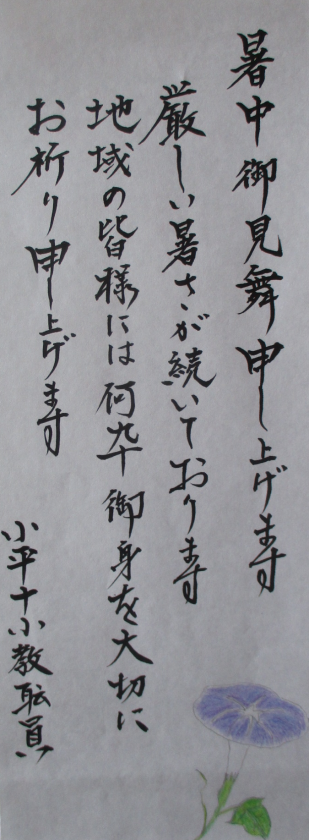 暑中御見舞申し上げます
厳しい暑さが続いております
地域の皆様には何卆御身を大切に
お祈り申し上げます
小平十小教職員